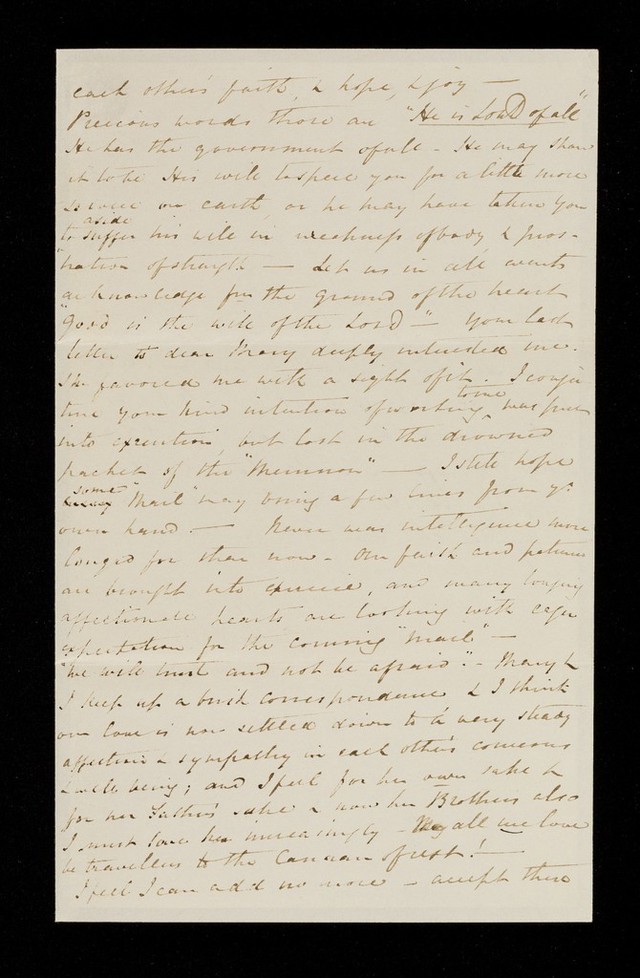 each others faith, & hope, & joy —
Precious words those are "He is Lord of all"
He has the government of all - He may shew
it to be His will to spare you for a little more
service on earth, or he may have taken you
aside
to suffer his will in weakness of body & pros-
tration of strength — Let us in all events
acknowledge from the ground of the heart
"Good is the will of the Lord" — Your last
letter to dear Mary deeply interested me.
She favored me with a sight of it. I conjec
ture your kind intention of writing to me was put
into execution, but lost in the drowned
packet of the "Memnon" — I still hope
some "Mail" may bring a few lines from yr
own hand. — Never was intelligence more
longed for than now - Our faith and patience
are brought into exercise, and many longing
affectionate hearts are looking with eager
expectation for the coming "mail" —
"We will trust and not be afraid." - Mary &
I keep up a brisk correspondence & I think
our love is now settled down to a very steady
affection & sympathy in each others concerns
& well being; and I feel for her own sake &
for her Father's sake & now her Brothers also
I must love her increasingly - May all we love
be travellers to the Canaan of rest! —
I feel I can add no more - accept these